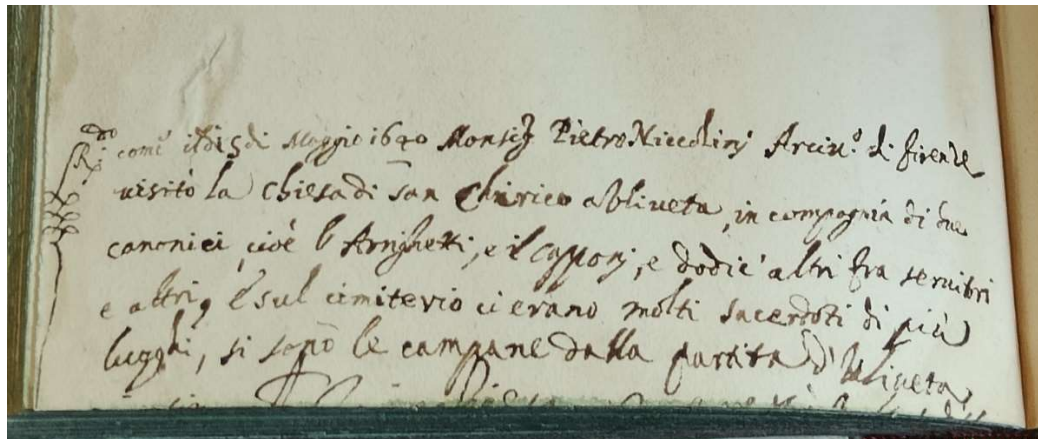 R.do come il di 5 di Maggio 1640 Monsig. Pietro Niccolinj Arciv.o di firenze
visitò la Chiesa di San Chirico a Uliveta, in compagnia di due
canonici, cioè l'Arrighetti, e il Capponj, e dodici altri fra servitori
e altri, e sul cimiterio ci erano molti sacerdoti di più
luoghi, si sonò le campane dalla partita d'Uliveta